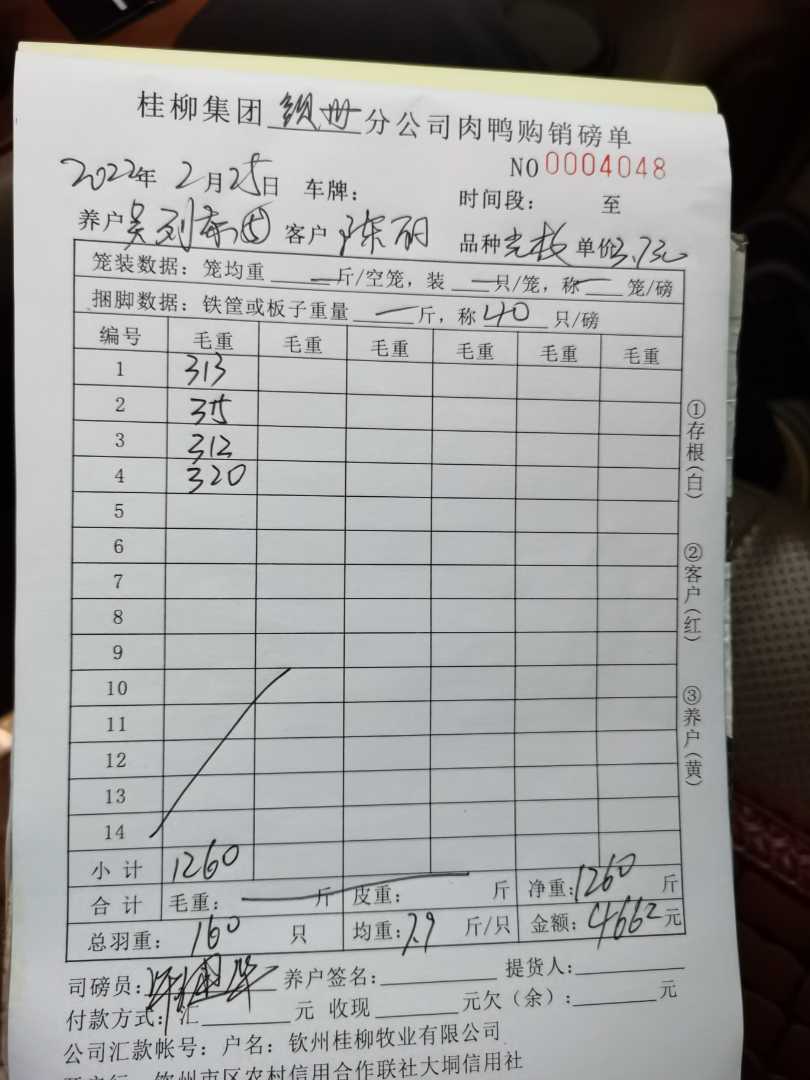 桂柳集团 钦州 分公司肉鸭购销磅单
NO 0004048
2022年 2月25日 车牌: 时间段: 至
养户 吴 客户 陈丽 品种 单价3.7元
笼装数据: 笼均重 一 斤/空笼, 装 一 只/笼, 称 一 笼/磅
捆脚数据: 铁筐或板子重量 一 斤, 称 40 只/磅
编号 毛重 毛重 毛重 毛重 毛重 毛重
1 313
2 315
3 312
4 320
5
6
7
8
9
10
11
12
13
14
小计 1260
合计 毛重: 斤 皮重: 斤 净重: 1260 斤
总羽重: 160 只 均重: 7.9 斤/只 金额: 4662 元
司磅员: 养户签名: 提货人:
付款方式: 汇 元 收现 元欠(余): 元
公司汇款帐号: 户名: 钦州桂柳牧业有限公司
开户行: 钦州市区农村信用合作联社大垌信用社
①存根(白)
②客户(红)
③养户(黄)